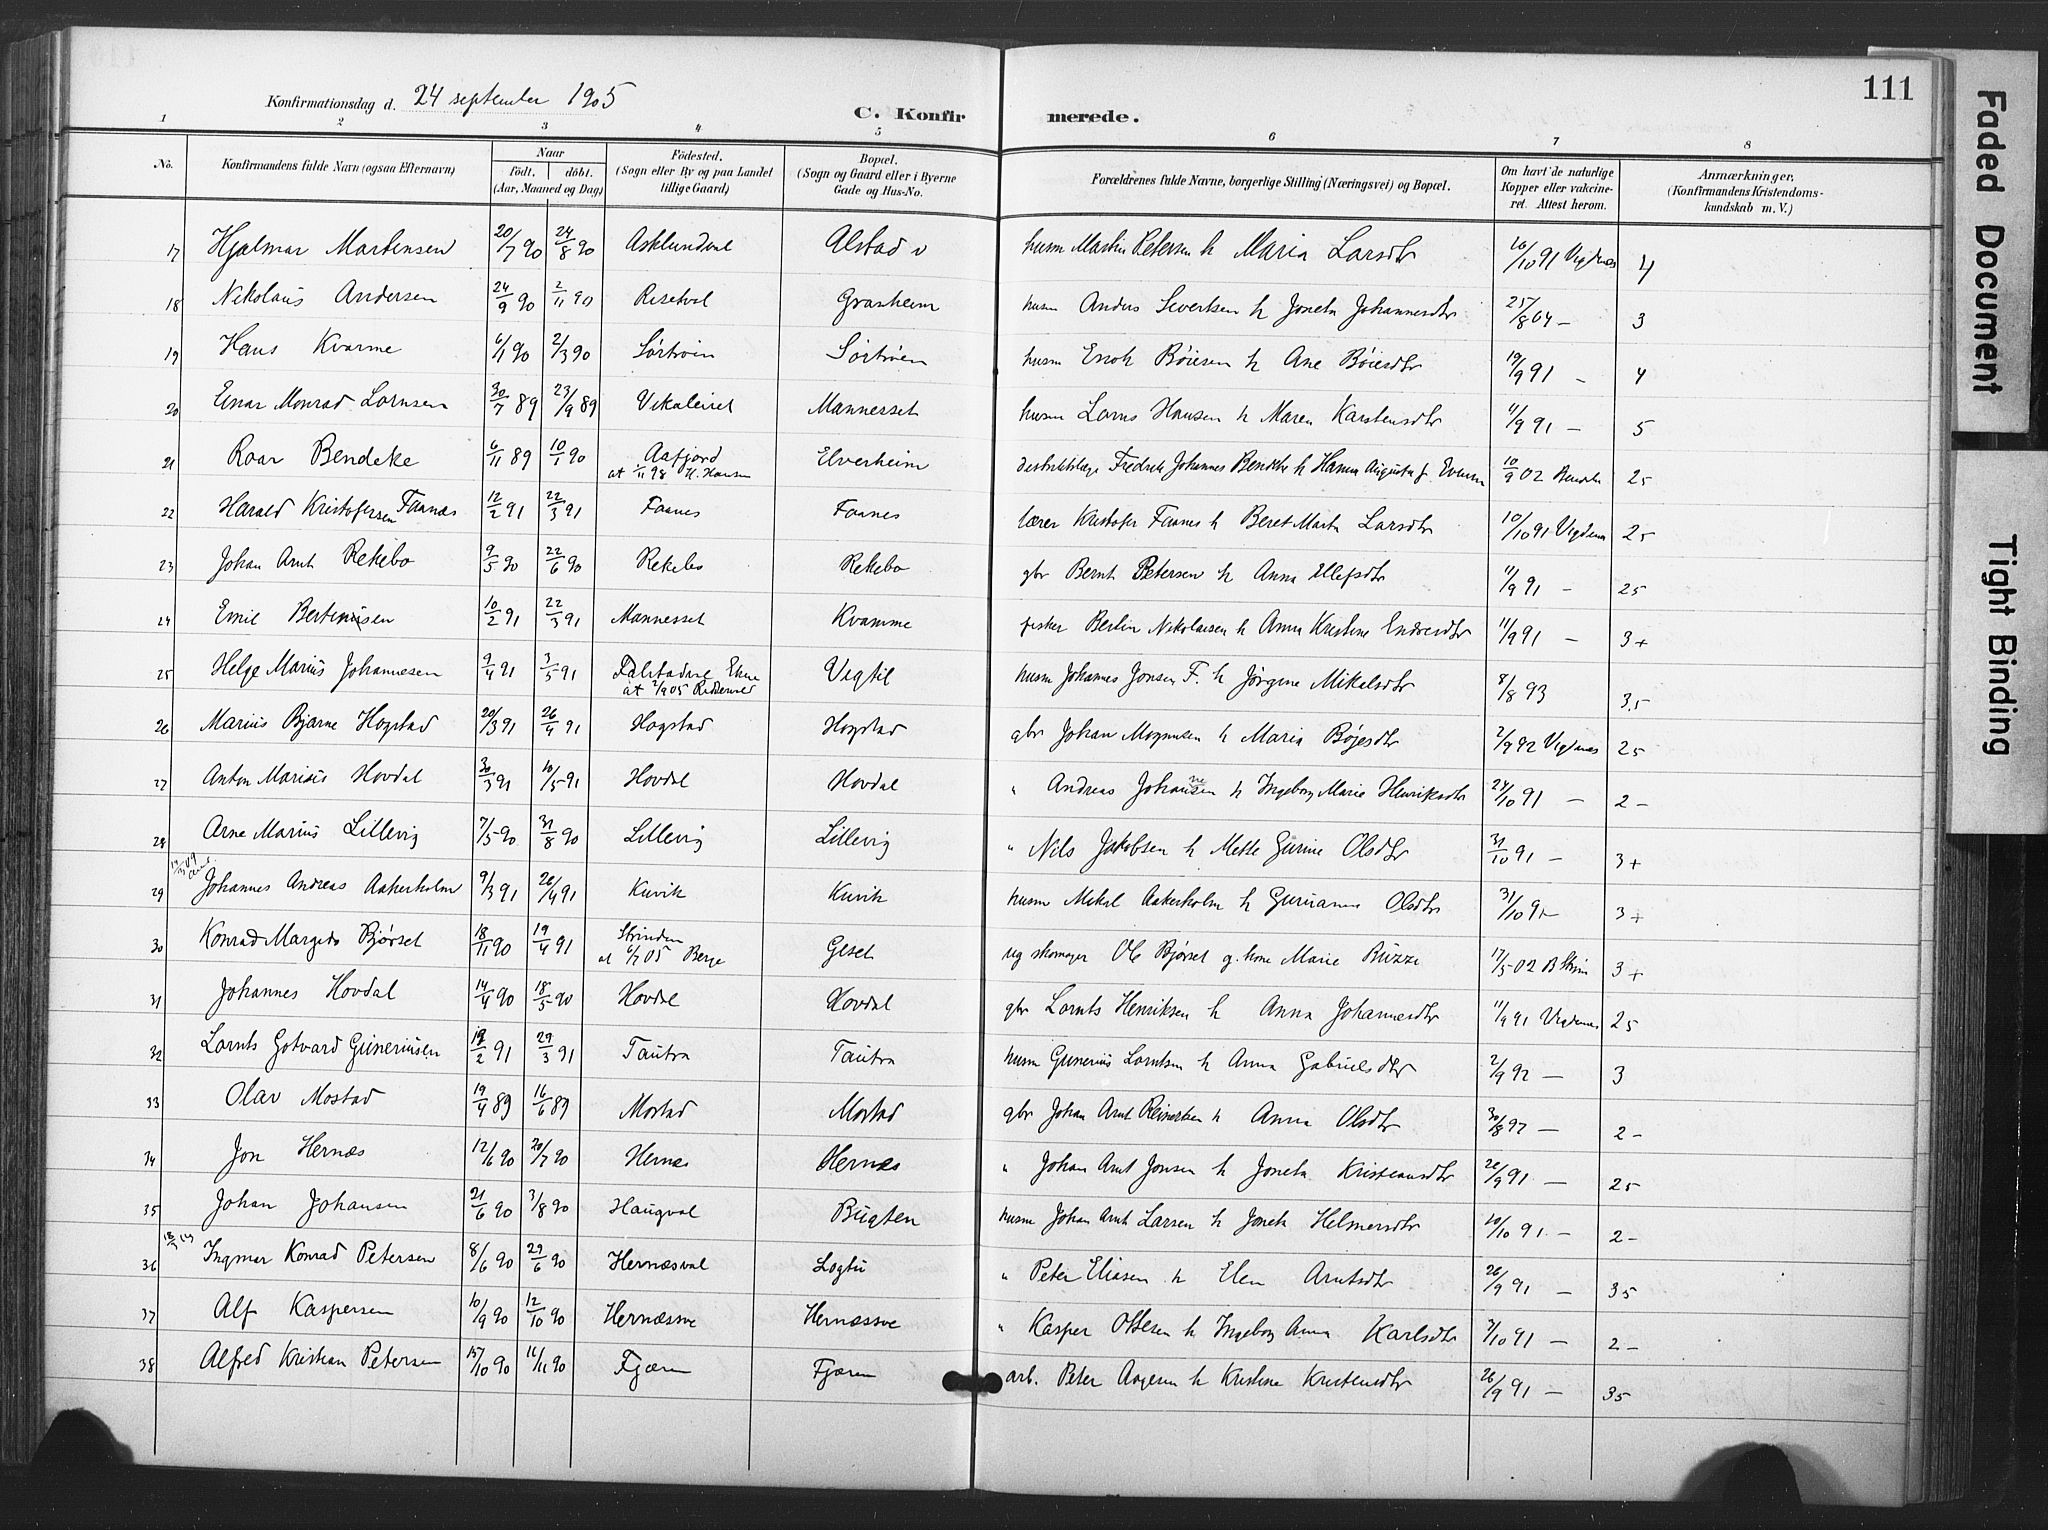 111
Konfirmationsdag d. 24 september 1905
C. Konfirmerede.
1 2 3 4 5 6 7 8
No. Konfirmandens fulde Navn (ogsaa Efternavn) Naar født. døbt. (Aar, Maaned og Dag) Födested. (Sogn eller By og paa Landet tillige Gaard) Bopæl. (Sogn og Gaard eller i Byerne Gade og Hus-No. Forældrenes fulde Navne, borgerlige Stilling (Næringsvei) og Bopæl. Om havt de naturlige Kopper eller vakcineret. Attest herom. Anmærkninger, (Konfirmandens Kristendomskundskab m. V.)
17 Hjalmar Martinsen 20/7 90 24/8 90 Alstad v husm Martin Petersen h Maria Larsdtr 10/91 Vigdenes 4
18 Nikolaus Andersen 24/9 90 2/11 90 Grasheim husm Anders Sivertsen h Joneta Johannesdtr 25/8 04 – 3
19 Hans Kvarme 6/1 90 2/3 90 husm Enok Böiesen h Ane Böiesdtr 19/9 91 – 4
20 Einar Monrad Lornsen 30/7 89 23/9 89 Vikaleiret Mannesset husm Lorns Hansen h Maren Karstensdtr 11/9 91 – 5
21 Roar Bendeke 6/11 89 10/1 90 Aafjord at 1/11 98 H. Hansen Elverheim destriktslæge Fredrik Johannes Bendeke h Hanna Augusta f. Evensen 10/9 02 Bendeke 25
22 Harald Kristofersen Faanæs 12/2 91 22/3 91 Faanes Faanes lærer Kristofer Faanes h Beret Marta Larsdtr 10/10 91 Vigdenes 25
23 Johan Arnt Rekebo 9/5 90 22/6 90 Rekebo Rekebo gbr Bernt Petersen h Anna Ellefsdtr 11/9 91 – 25
24 Emil Bertinusen 10/2 91 22/3 91 Mannesset Kvamme fisker Bertin Nikolaisen h Anna Kristine Endresdtr 11/9 91 – 3+
25 Helge Marius Johannesen 9/4 91 3/5 91 at 2/9 05 Vegtil husm Johannes Jonsen F. h Jørgine Mikalsdtr 8/8 93 3.5
26 Marius Bjarne Hogstad 20/3 91 26/4 91 Hogstad Hogstad gbr Johan Mogensen h Maria Bøjesdtr 2/9 92 Vigdenes 25
27 Anton Marius Hovdal 30/3 91 10/5 91 Hovdal Hovdal " Andreas Johannesen h Ingeborg Marie Henriksdtr 24/10 91 – 2 –
28 Arne Marius Lillevig 7/5 90 31/8 90 Lillevig Lillevig " Nils Jakobsen h Mette Gurine Olsdtr 31/10 91 – 3+
29 Johannes Andreas Aakerholm 9/3 91 26/4 91 Kuvik Kuvik husm Mikal Aakerholm h Guruanna Olsdtr 31/10 91 – 3+
30 Konrad Margido Bjørset 18/11 90 19/4 91 Strinden at 6/7 05 Berge Geset ug skomager Ole Bjørset g. kone Marie Buzzi 17/5 02 3+
31 Johannes Hovdal 14/4 90 18/5 90 Hovdal Hovdal gbr Lornts Henriksen h Anna Johannesdtr 11/9 91 Vigdenes 25
32 Lornts Gotvard Guneriusen 12/2 91 29/3 91 Tautra Tautra husm Gunerius Lorntsen h Anna Gabrielsdtr 2/9 92 – 3
33 Olav Mostad 19/4 89 16/6 89 Mostad Mostad gbr Johan Arnt Reinertsen h Anna Olsdtr 30/8 97 – 2 –
34 Jon Hernæs 12/6 90 20/7 90 Hernæs Hernæs " Johan Arnt Jonsen h Joneta Kristiansdtr 26/9 91 – 25
35 Johan Johansen 21/6 90 3/8 90 Haugval Bugten husm Johan Arnt Larsen h Joneta Helmersdtr 10/10 91 – 2 –
36 Ingmar Konrad Petersen 8/6 90 29/6 90 Hernæsval Logtu " Peter Eliasen h Elen Arntsdtr 26/9 91 – 35
37 Alf Kaspersen 10/9 90 12/10 90 Hernæssve Hernæssve " Kasper Ottesen h Ingeborg Anna Karlsdtr 3/10 91 – 2 –
38 Alfred Kristian Petersen 15/10 90 16/11 90 Fjæren Fjæren arb. Peter Aagesen h Kristine Kristensdtr 26/9 91 – 35
Faded Document
Tight Binding